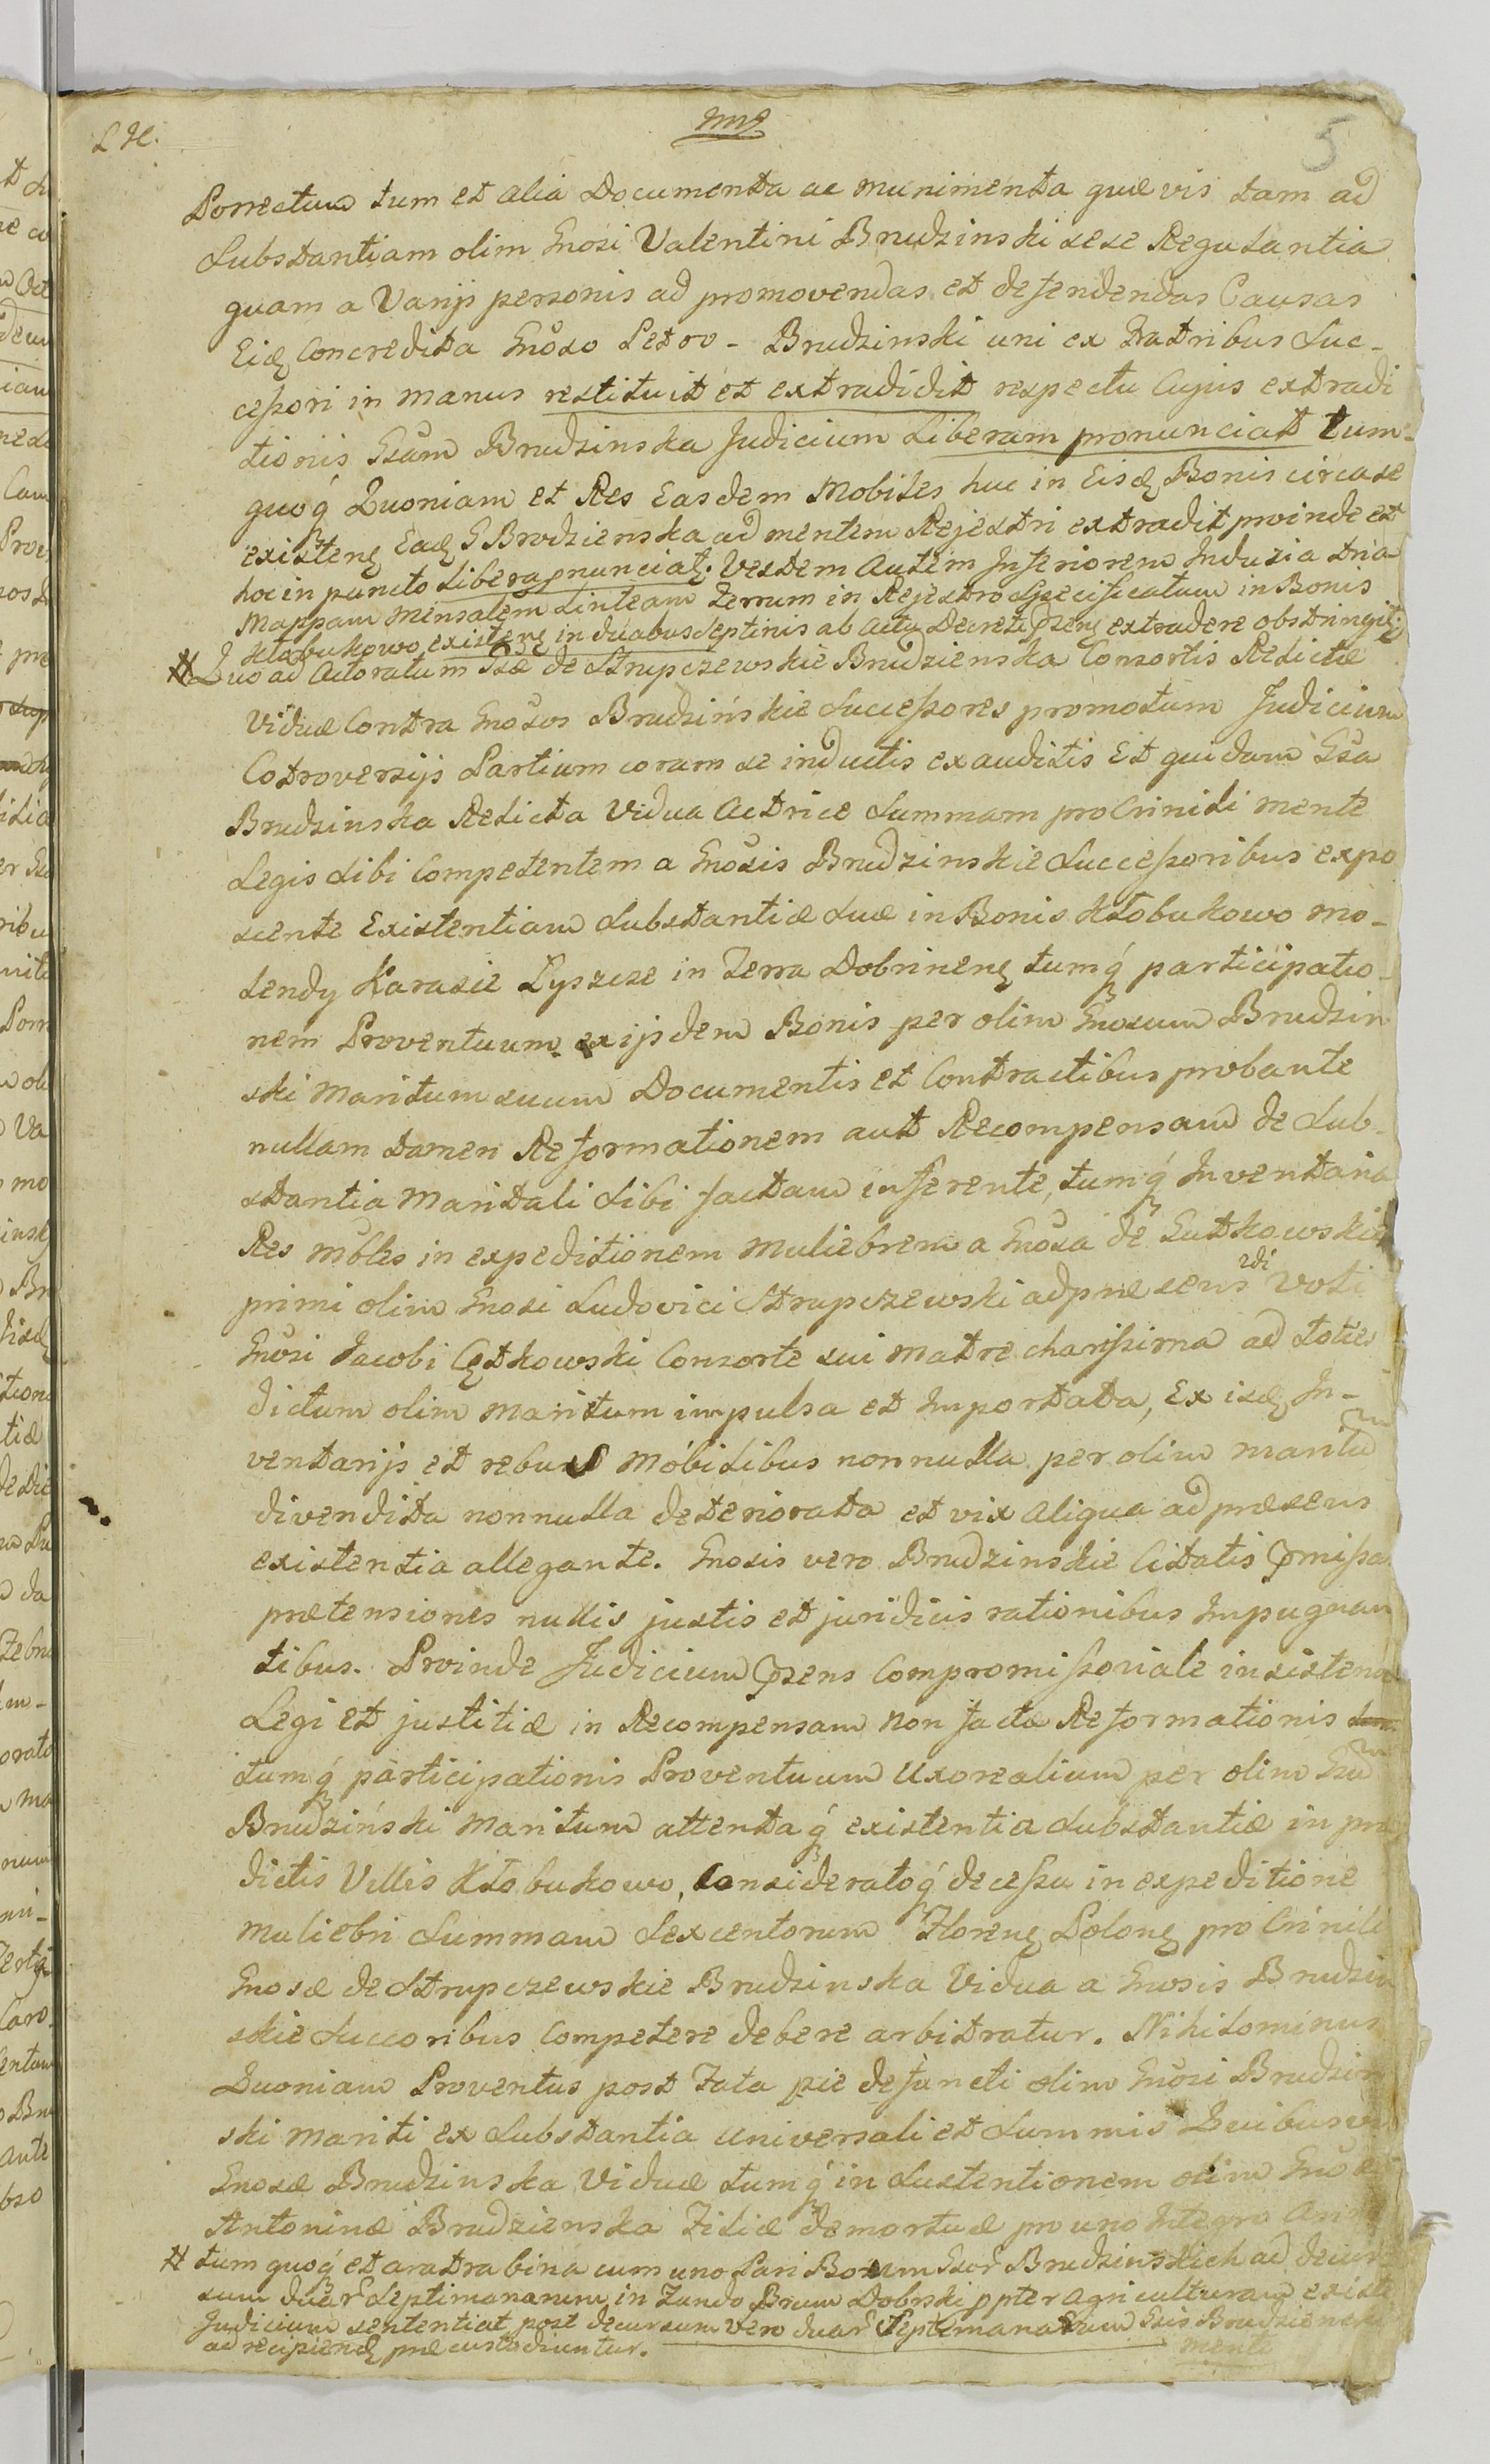 5
Porrectum tum et alia Documenta ac munimenta quævis tam ad
Substantiam olim Gnosi Valentini Brudzinski sese Regulantia
quam a Varijs personis ad promovendas et defendendas Causas
Eidę Concredita Gnoso Petro - Brudzinski uni ex Fratribus Suc-
cessori in manus restituit et extradidit respectu Cujus extradi
tionis Gsam Brudzinska Judicium Liberam pronunciat tum-
quoq́ Quoniam et Res Easdem Mobiles huc in Eisdę Bonis circa se
existenę Eadę G Brodzienska ad mentem Rejestri extradit proinde et
hoc in puncto Libera pnunciatę. Vestem Autem Inferiorem Indusia tria
Mappam Mensalem Linteam Ferrum in Rejestro Specificatum in Bonis
Kłobukowo existenę in duabus Septinis ab actu Decreti psenę extradere obstringitę
# Quo ad Actoratum Gsæ de Strupczewskie Brudzienska Consortis Relictæ
Viduæ Contra Gnosos Brudzińskie Successores promotum Judicium
Cotroversijs Partium coram se inductis exauditis Et quidam Gsa
Brudzinska Relicta Vidua Actrice Summam pro Crinili mente
Legis Sibi Competentem a Gnosis Brudzinskie Successoribus expo
scente Existentiam Substantiæ Suæ in Bonis Kłobukowo mo-
lendy Karasie Łyszcze in Terra Dobrinenę tumq́ participatio-
nem Proventuum ex ijsdem Bonis per olim Gnosum Brudzin
ski Maritum suum Documentis et Contractibus probante
nullam tamen Reformationem aut Recompensam de Sub-
stantia Maritali Sibi factam inferente, tumq́ Inventaria
Res mbles in expeditionem Muliebrem a Gnosa de Sutkowskie
primi olim Gnosi Ludovici Strupczewski ad præsens 2di Voti
Gnosi Jacobi Cętkowski Consorte sui Matre charissima ad toties
dictum olim Maritum impulsa et Importata, Ex isdę In-
ventarijs et rebus Mobilibus nonnulla per olim Maritum
divendita nonnulla deteriorata et vix aliqua ad præsens
existentia allegante. Gnosis vero Brudzinskie Citatis pmissa
prætensiones nullis justis et juridicis rationibus Impugnan
tibus. Proinde Judicium psens Compromissoriale insistens
Legi et justitiæ in Recompensam non factæ Reformationis
tumq́ participationis Proventuum Uxorealium per olim Gsum
Brudziński Maritum attentaq́ existentia Substantiæ in præ
dictis Villis Kłobukowo, Consideratoq́ decessu in expeditione
Muliebri Summam Sexcentorum Florenę Polonę pro Crinili
Gnosæ de Strupczewskie Brudzinska Vidua a Gnosis Brudzin
skie Succoribus Competere debere arbitratur. Nihilominus
Quoniam Proventus post Fata pie defuncti olim Gnosi Brudzin
ski Mariti ex Substantia universali et Summis Quibusvis
Gnosæ Brudzinska Viduæ tumq́ in Sustentionem olim Gnosæ
Antoninæ Brudzienska Filiæ demortuæ pro uno Integro Anno
# tum quoq́ et aratra bina cum uno Pari Boum Gsor Brudzinskich ad decur
sum duar Septimanarum in Fundo Brum Dobrski ppter agriculturam existe
Judicium sententiat post decursum vero duar Septimanarum Gsis Brudzienskie
ad recipiendę præcustodiuntur.
mente